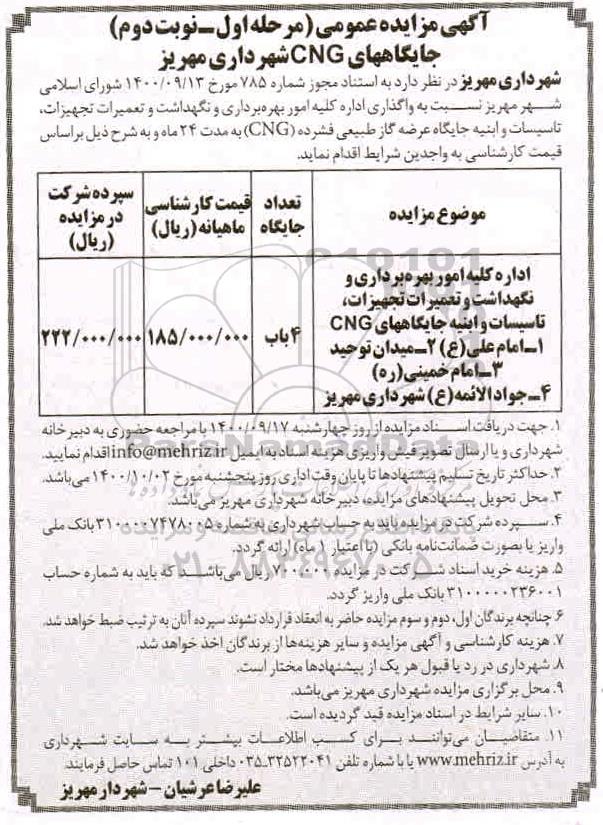 آگهی مزایده عمومی (مرحله اول ـ نوبت دوم)
جایگاههای CNG شهرداری مهریز
شهرداری مهریز در نظر دارد به استناد مجوز شماره ۷۸۵ مورخ ۱۴۰۰/۰۹/۱۳ شورای اسلامی
شهر مهریز نسبت به واگذاری اداره کلیه امور بهره‌برداری و نگهداشت و تعمیرات تجهیزات،
تاسیسات و ابنیه جایگاه عرضه گاز طبیعی فشرده (CNG) به مدت ۲۴ ماه و به شرح ذیل براساس
قیمت کارشناسی به واجدین شرایط اقدام نماید.
موضوع مزایده
تعداد جایگاه
قیمت کارشناسی ماهیانه (ریال)
سپرده شرکت در مزایده (ریال)
اداره کلیه امور بهره‌برداری و
نگهداشت و تعمیرات تجهیزات،
تاسیسات و ابنیه جایگاههای CNG
۱ـ امام علی (ع) ۲ـ میدان توحید
۳ـ امام خمینی (ره)
۴ـ جواد الائمه (ع) شهرداری مهریز
۴ باب
۱۸۵/۰۰۰/۰۰۰
۲۲۲/۰۰۰/۰۰۰
۱. جهت دریافت اسناد مزایده از روز چهارشنبه ۱۴۰۰/۰۹/۱۷ با مراجعه حضوری به دبیرخانه
شهرداری و یا ارسال تصویر فیش واریزی هزینه اسناد به ایمیل info@mehriz.ir اقدام نمایید.
۲. حداکثر تاریخ تسلیم پیشنهادها تا پایان وقت اداری روز پنجشنبه مورخ ۱۴۰۰/۱۰/۰۲ می‌باشد.
۳. محل تحویل پیشنهادهای مزایده، دبیرخانه شهرداری مهریز می‌باشد.
۴. سپرده شرکت در مزایده باید به حساب شهرداری به شماره ۳۱۰۰۰۰۷۴۷۸۰۰۵ بانک ملی
واریز یا بصورت ضمانت‌نامه بانکی (با اعتبار ۱ ماه) ارائه گردد.
۵. هزینه خرید اسناد شرکت در مزایده ۷۰۰۰۰۰ ریال می‌باشد که باید به شماره حساب
۳۱۰۰۰۰۰۲۳۶۰۰۱ بانک ملی واریز گردد.
۶. چنانچه برندگان اول، دوم و سوم مزایده حاضر به انعقاد قرارداد نشوند سپرده آنان به ترتیب ضبط خواهد شد.
۷. هزینه کارشناسی و آگهی مزایده و سایر هزینه‌ها از برندگان اخذ خواهد شد.
۸. شهرداری در رد یا قبول هر یک از پیشنهادها مختار است.
۹. محل برگزاری مزایده شهرداری مهریز می‌باشد.
۱۰. سایر شرایط در اسناد مزایده قید گردیده است.
۱۱. متقاضیان می‌توانند برای کسب اطلاعات بیشتر به سایت شهرداری
به آدرس www.mehriz.ir یا با شماره تلفن ۰۳۵ـ۳۲۵۲۲۰۴۱ داخلی ۱۰۱ تماس حاصل فرمایند.
علیرضا عرشیان - شهردار مهریز
ParsNamadData